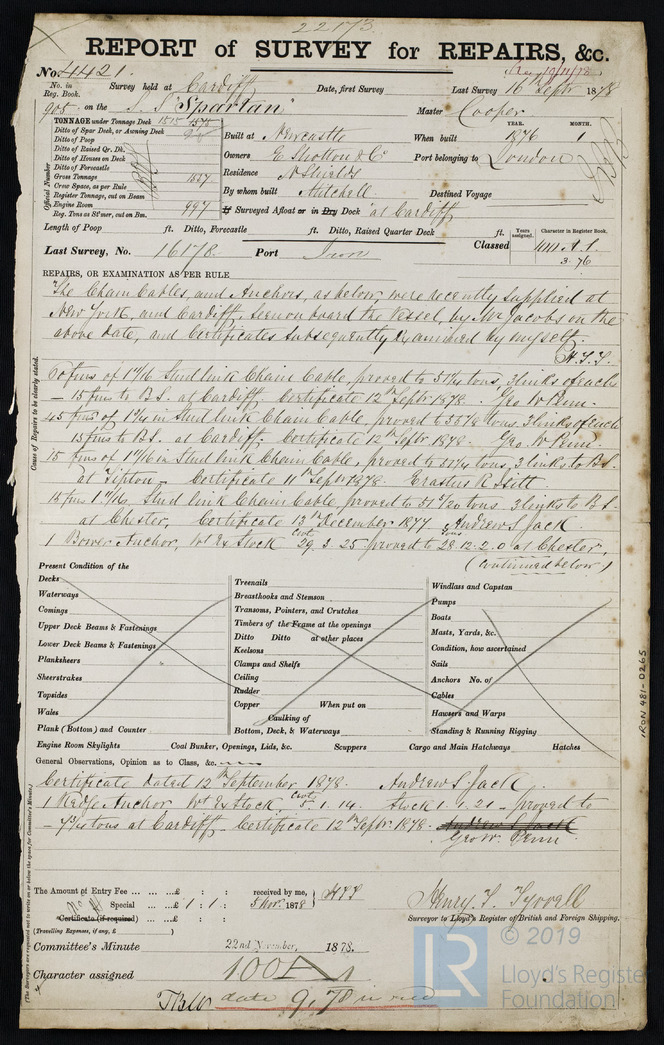 22173
REPORT of SURVEY for REPAIRS, &c.
No. 4421. Rec 10/11/78
No. in Reg. Book. Survey held at Cardiff Date, first Survey Last Survey 16th Septr 1878
905 on the S.S "Spartan" Master Cooper
TONNAGE under Tonnage Deck
Ditto of Spar Deck, or Awning Deck
Ditto of Poop
Ditto of Raised Qr. Dk.
Ditto of Houses on Deck
Ditto of Forecastle
Gross Tonnage
Crew Space, as per Rule
Register Tonnage, cut on Beam
Engine Room
Reg. Tons as St'mer, cut on Bm. 997
Official Number
YEAR. MONTH.
Built at Newcastle When built 1876 1
Owners E Shotton & Co Port belonging to London
Residence N Shields
By whom built Mitchell Destined Voyage
If Surveyed Afloat or in Dry Dock at Cardiff
Length of Poop ft. Ditto, Forecastle ft. Ditto, Raised Quarter Deck ft.
Years assigned. Character in Register Book.
Last Survey, No. 16178. Port Iron Classed 100 A.1.
3.76
REPAIRS, OR EXAMINATION AS PER RULE
The Chain Cables, and Anchors, as below, were recently supplied at
New York, and Cardiff, seen on board the Vessel, by Mr Jacobs on the
above date, and Certificates subsequently Examined by myself.
H.T.T.
60 fms of 1 11/16 Stud link Chain Cable, proved to 51 1/4 tons, 3 links of each
— 15 fms to B.S. at Cardiff Certificate 12th Septr 1878. Geo W Penn.
45 fms of 1 3/4 in Stud link Chain Cable, proved to 55 1/8 tons, 3 links of each
15 fms to B.S. at Cardiff. Certificate 12th Septr 1878. Geo W Penn
15 fms of 1 11/16 in Stud link Chain Cable, proved to 51 1/4 tons, 3 links to B.S.
at Tipton. Certificate 11th Septr 1878.
15 fms 1 11/16 Stud link Chain Cable, proved to tons. 3 links to B.S.
at Chester, Certificate 13th December 1877 Andrew S Jack
1 Bower Anchor, Wt Ex Stock Cwt 29. 3. 25 proved to Tons 28.12.2.0 at Chester,
(Continued below)
Cause of Repairs to be clearly stated.
Present Condition of the
Decks
Waterways
Comings
Upper Deck Beams & Fastenings
Lower Deck Beams & Fastenings
Planksheers
Sheerstrakes
Topsides
Wales
Plank (Bottom) and Counter
Engine Room Skylights
Treenails
Breasthooks and Stemson
Transoms, Pointers, and Crutches
Timbers of the Frame at the openings
Ditto Ditto at other places
Keelsons
Clamps and Shelfs
Ceiling
Rudder
Copper When put on
Caulking of
Bottom, Deck, & Waterways
Coal Bunker, Openings, Lids, &c. Scuppers
Windlass and Capstan
Pumps
Boats
Masts, Yards, &c.
Condition, how ascertained
Sails
Anchors No. of
Cables
Hawsers and Warps
Standing & Running Rigging
Cargo and Main Hatchways Hatches
General Observations, Opinion as to Class, &c.
Certificate dated 12th September 1878. Andrew S Jack
1 Kedge Anchor Wt Ex Stock Cwt 5. 1. 14. Stock 1. 1. 21 — proved to
— 7 3/4 tons at Cardiff — Certificate 12th Septr 1878. Andrew S Jack
Geo W. Penn
The Amount of Entry Fee ... ... ...£ : : received by me,
Special ... ...£ 1 : 1 : 5 Nov. 1878 HTT
Certificate (if required) ... £ : :
(Travelling Expenses, if any, £ )
Henry T. Tyrrell
Surveyor to Lloyd's Register of British and Foreign Shipping.
Committee's Minute 22nd November, 1878.
Character assigned 100 A 1
date 9,78 in red
(The Surveyors are requested not to write on or below the space for Committee's Minute.)
IRON 481-0265
LR
© 2019
Lloyd's Register
Foundation